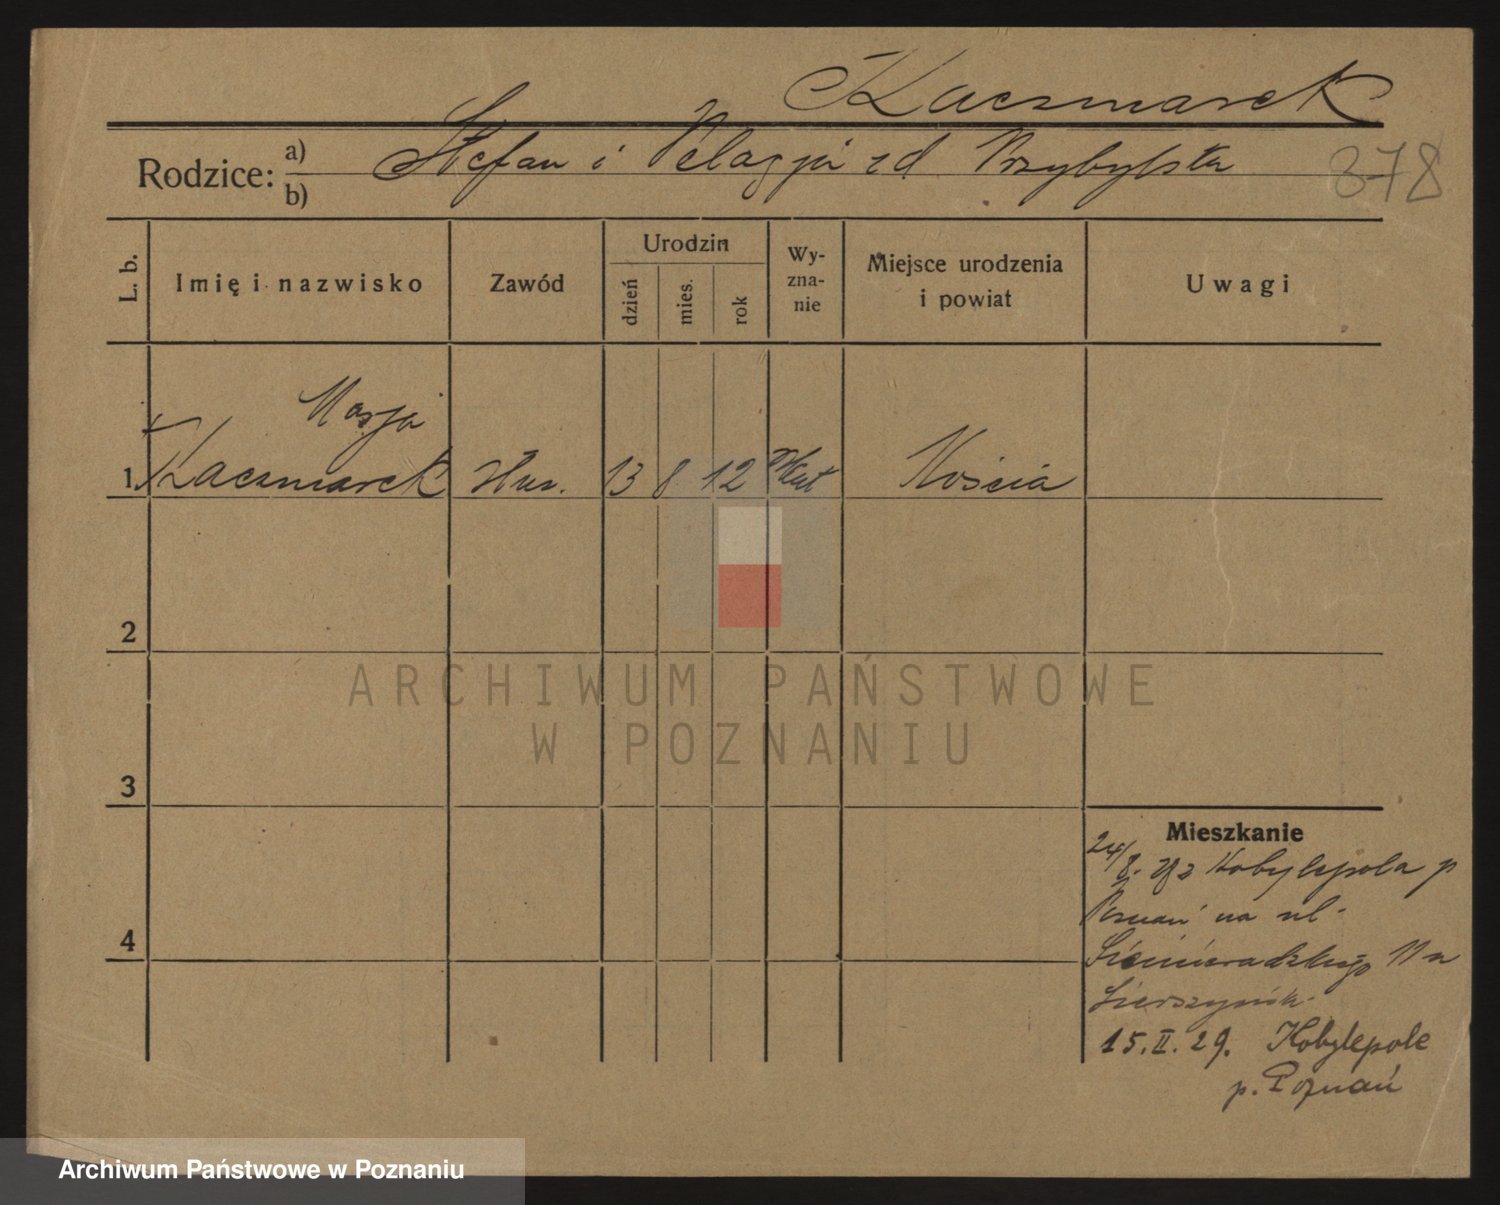 Kaczmarek
Rodzice: a) b) Stefan i Pelagja zd Przybylska 378
L. b.
Imię i nazwisko
Zawód
Urodzin
dzień
mies.
rok
Wy-
zna-
nie
Miejsce urodzenia
i powiat
Uwagi
Marja
1. Kaczmarek służ. 13 8 12 kat Kościa
2
3
4
Mieszkanie
24/8. Kobylepola p
Poznań na ul.
Siemieradzkiego 11 u
15.II.29. Kobylepole
p. Poznań
ARCHIWUM PAŃSTWOWE
W POZNANIU
Archiwum Państwowe w Poznaniu